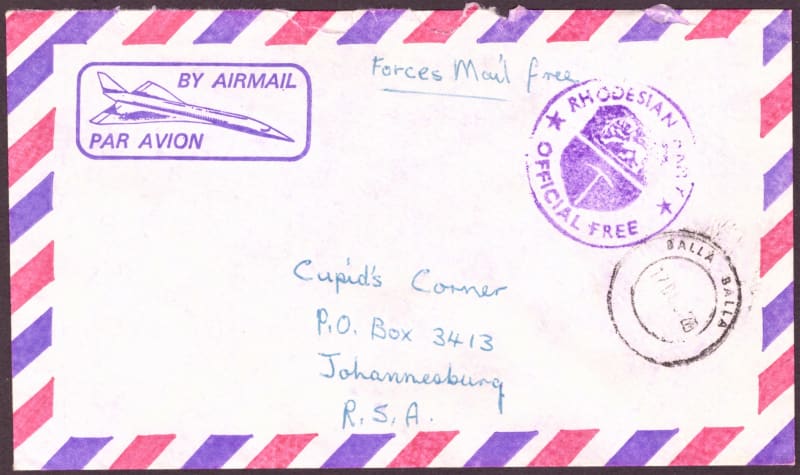 BY AIRMAIL
PAR AVION
Forces Mail free
RHODESIAN ARMY
OFFICIAL FREE
BALLA BALLA
Cupid's Corner
P.O. Box 3413
Johannesburg
R.S.A.